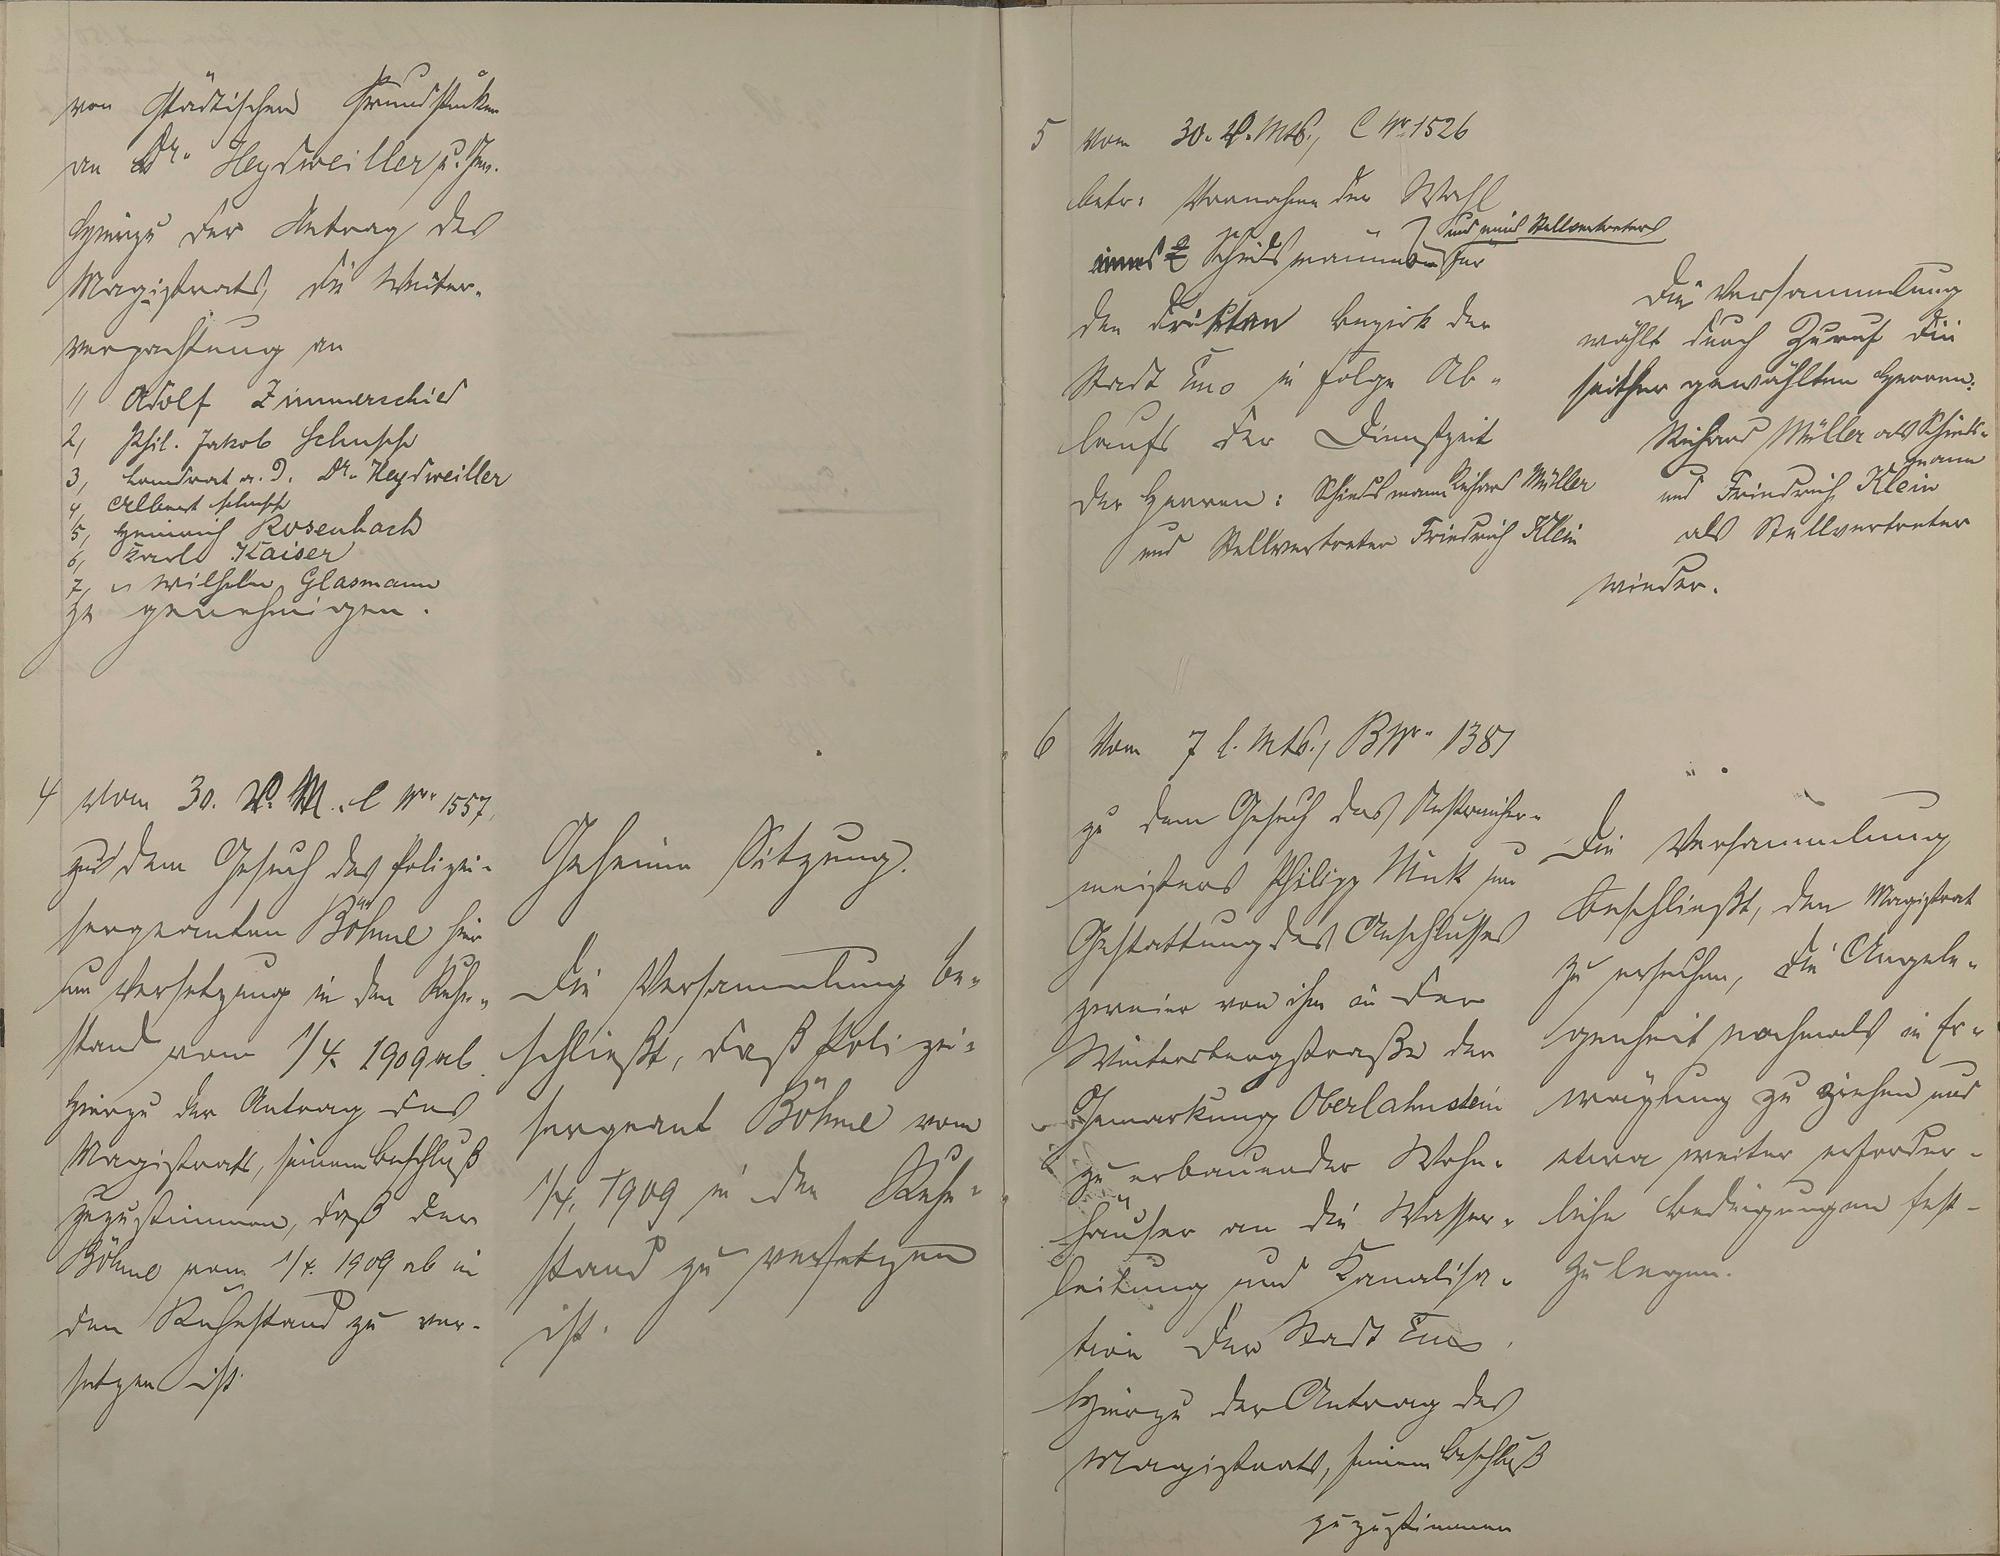 von städtischen Grundstücken
an Dr. Heydweiller u. Gen.
Hierzu der Antrag des
Magistrats, die Weiter-
verpachtung an
1, Adolf Zimmerschied
2, Phil. Jakob
3, Landrat a. D. Dr. Heydweiller
4, Albert
5, Heinrich Rosenbach
6, Karl Kaiser
7, " Wilhelm Glasmann
zu genehmigen.
4 Vom 30. V. M. C Nr. 1557,
zu dem Gesuch des Polizei-
sergeanten Böhme hier
um Versetzung in den Ruhe-
stand vom 1/4. 1909 ab.
Hierzu der Antrag des
Magistrats, seinem Beschluß
zuzustimmen, daß der
Böhme vom 1/4. 1909 ab in
den Ruhestand zu ver-
setzen ist.
Geheime Sitzung.
Die Versammlung be-
schließt, daß Polizei-
sergeant Böhme vom
1/4. 1909 in den Ruhe-
stand zu versetzen
ist.
5 Vom 30. V. Mts., C Nr. 1526
betr: Vornahme der Wahl
eines Schiedsmannes für
und eines Stellvertreters
den dritten Bezirk der
Stadt Ems in Folge Ab-
laufs der Dienstzeit
der Herren: Schiedsmann Richard Müller
und Stellvertreter Friedrich Klein
Die Versammlung
wählt durch Zuruf die
seither gewählten Herren:
Richard Müller als Schieds-
mann
und Friedrich Klein
als Stellvertreter
wieder.
6 Vom 7 l. Mts., B Nr. 1381
zu dem Gesuch des
meisters Philipp um
Gestattung des Anschlusses
zweier von ihm in der
Wintersbergstraße der
Gemarkung Oberlahnstein
zu erbauender Wohn-
häuser an die Wasser-
leitung und Kanalisa-
tion der Stadt Ems.
Hierzu der Antrag des
Magistrats, seinem Beschluß
zuzustimmen
Die Versammlung
beschließt, den Magistrat
zu ersuchen, die Angele-
genheit nochmals in Er-
wägung zu ziehen und
etwa weiter erforder-
liche Bedingungen fest-
zulegen.